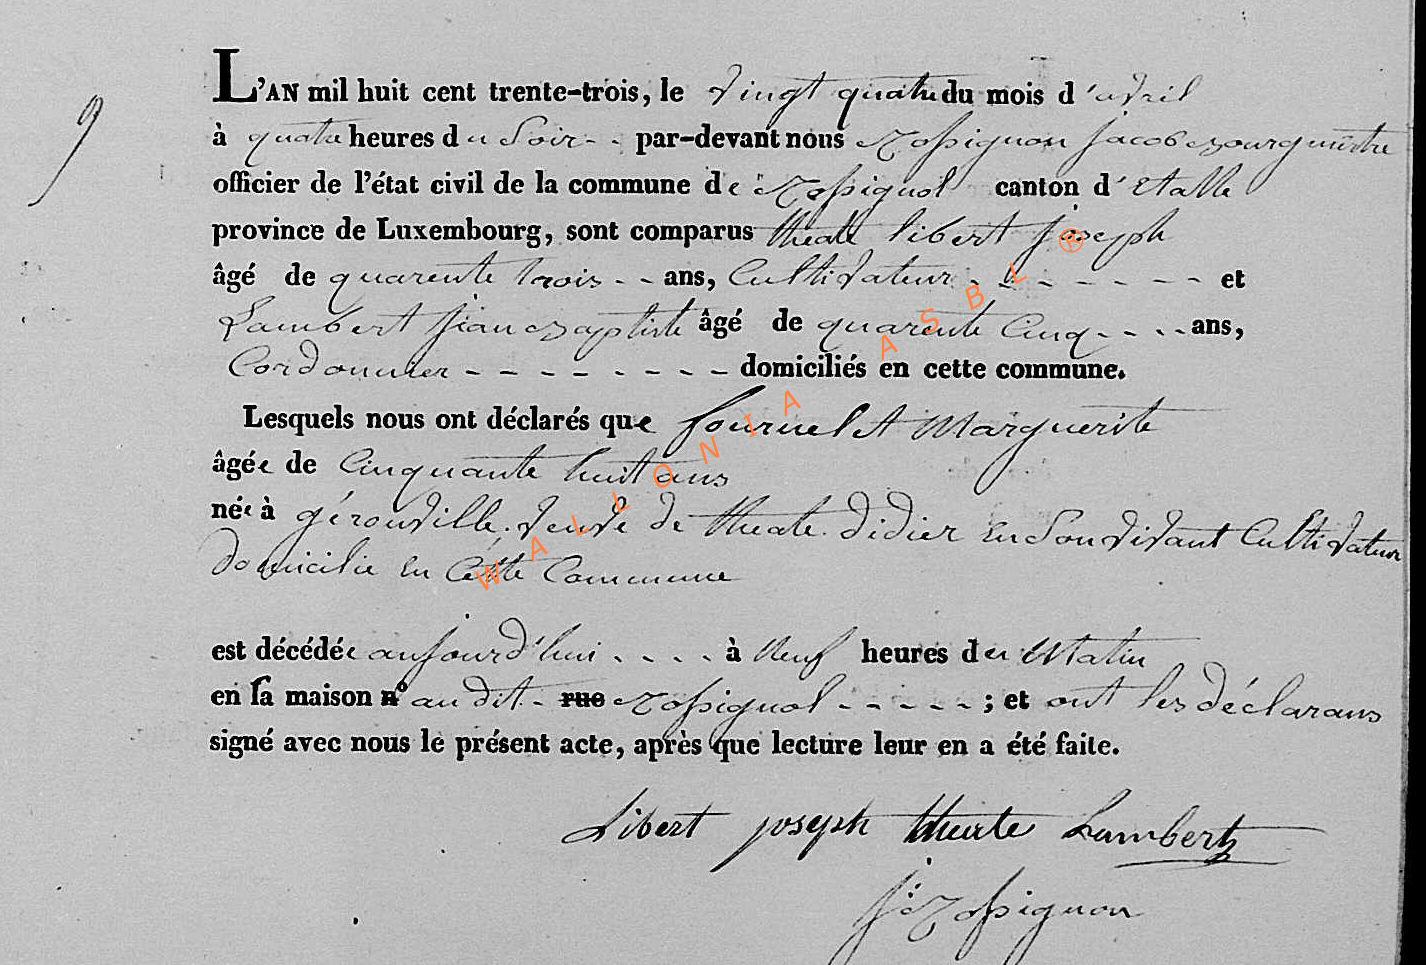 9
L'AN mil huit cent trente-trois, le vingt quatre du mois d'avril
à quatre heures du Soir - - par-devant nous Rossignon Jacob Bourgmestre
officier de l'état civil de la commune de Rossignol canton d'Etalle
province de Luxembourg, sont comparus theate libert joseph
âgé de quarente trois - - ans, Cultivateur - - - - - - - et
Lambert jean Baptiste âgé de quarente Cinq - - - - ans,
Cordonnier - - - - - - - - domiciliés en cette commune.
Lesquels nous ont déclarés que fournelet Marguerite
âgée de Cinquante huit ans
née à gérouville. veuve de theate didier en Son vivant Cultivateur
domicilie en Cette Commune
est décédée aujourd'hui - - - - à Neuf heures du Matin
en sa maison n° au dit - rue Rossignol - - - - - ; et ont les déclarans
signé avec nous le présent acte, après que lecture leur en a été faite.
Libert joseph theate Lambert
J: Rossignon
WALLONIA ASBL ®